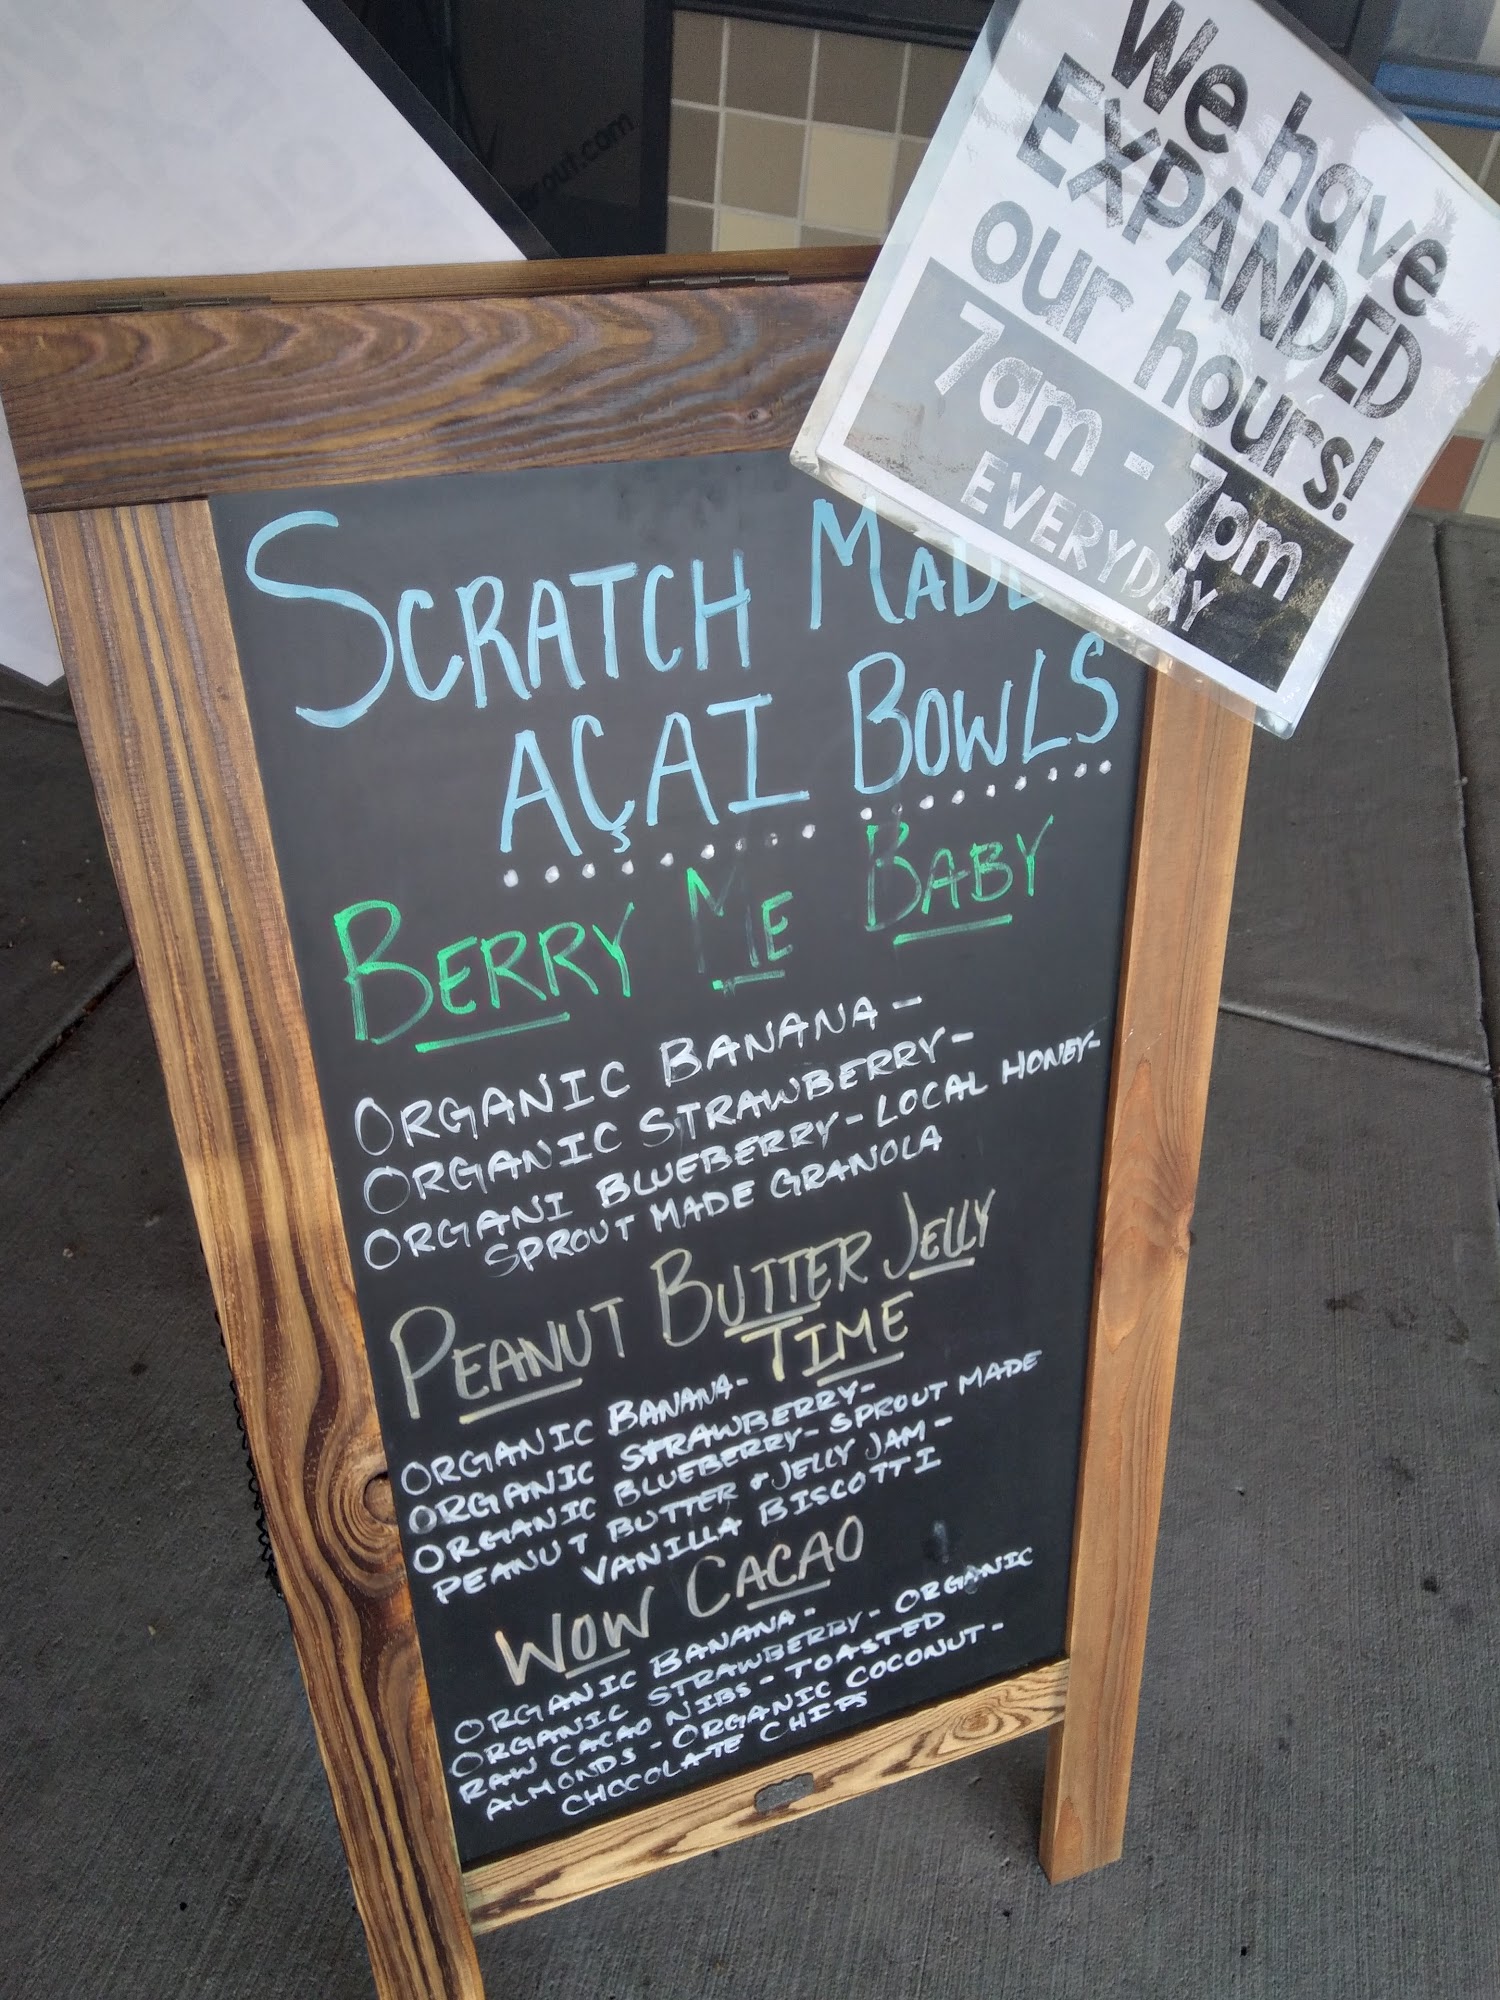 We have
EXPANDED
our hours!
7am - 7pm
EVERYDAY
rout.com
SCRATCH MADE
AÇAI BOWLS
BERRY ME BABY
ORGANIC BANANA-
ORGANIC STRAWBERRY-
ORGANI BLUEBERRY-LOCAL HONEY-
SPROUT MADE GRANOLA
PEANUT BUTTER JELLY
TIME
ORGANIC BANANA-
ORGANIC STRAWBERRY-
ORGANIC BLUEBERRY-SPROUT MADE
PEANUT BUTTER + JELLY JAM-
VANILLA BISCOTTI
WOW CACAO
ORGANIC BANANA-
ORGANIC STRAWBERRY-ORGANIC
RAW CACAO NIBS-TOASTED
ALMONDS-ORGANIC COCONUT-
CHOCOLATE CHIPS